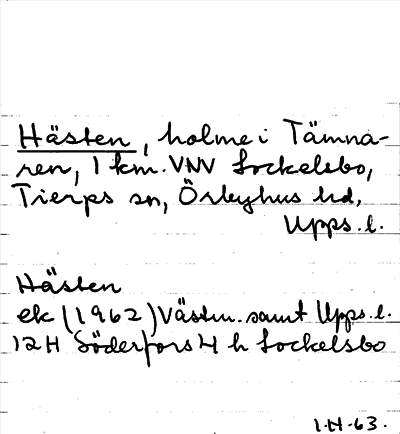 Hästen, holme i Tämna-
ren, 1 km. VNV Sockelsbo,
Tierps sn, Örbyhus hd,
Upps. l.
Hästen
ek (1962) Västm. samt Upps. l.
12H Söderfors 4 h Sockelsbo